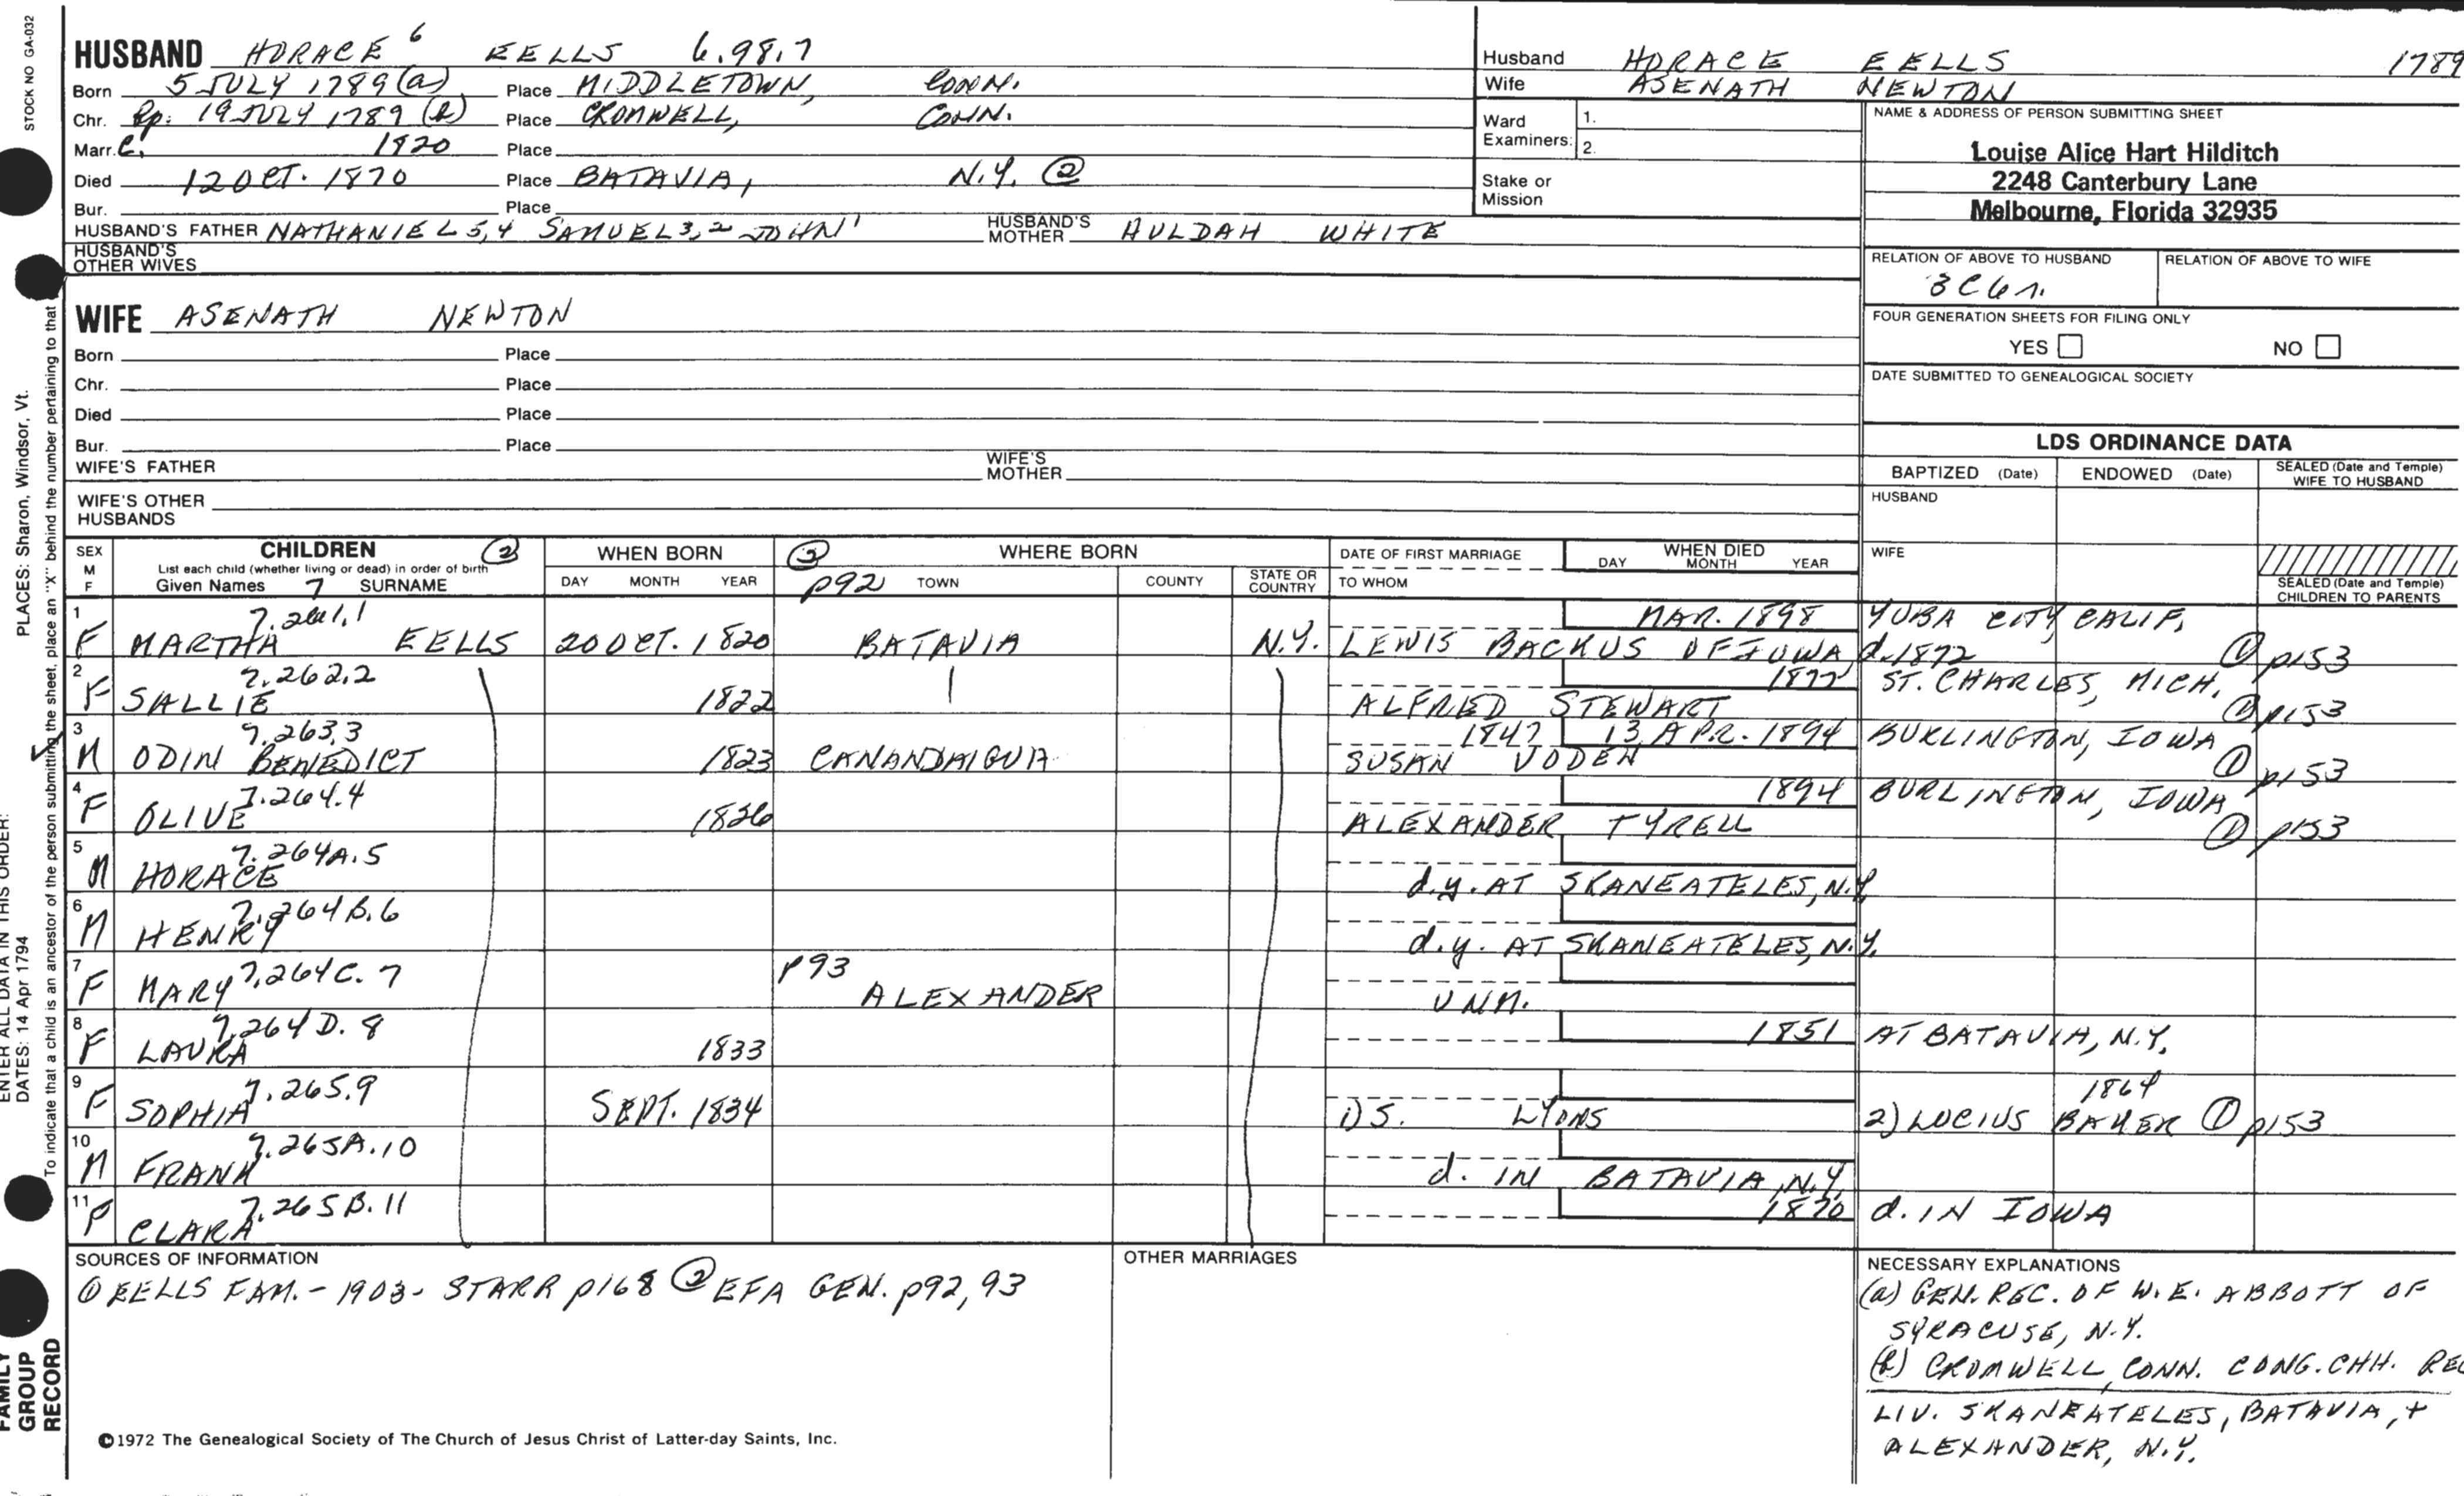 STOCK NO GA-032
HUSBAND HORACE 6 EELLS 6.98.7
Born 5 JULY 1789 (a) Place MIDDLETOWN, CONN.
Chr. Bp. 19 JULY 1789 (b) Place CROMWELL, CONN.
Marr. C. 1820 Place
Died 12 OCT. 1870 Place BATAVIA, N.Y. ②
Bur. Place
HUSBAND'S FATHER NATHANIEL 5,4 SAMUEL 3,2 JOHN 1 HUSBAND'S MOTHER HULDAH WHITE
HUSBAND'S OTHER WIVES
WIFE ASENATH NEWTON
Born Place
Chr. Place
Died Place
Bur. Place
WIFE'S FATHER WIFE'S MOTHER
WIFE'S OTHER HUSBANDS
Husband HORACE EELLS 1789
Wife ASENATH NEWTON
Ward Examiners: 1. 2.
Stake or Mission
NAME & ADDRESS OF PERSON SUBMITTING SHEET
Louise Alice Hart Hilditch
2248 Canterbury Lane
Melbourne, Florida 32935
RELATION OF ABOVE TO HUSBAND RELATION OF ABOVE TO WIFE
3C6r.
FOUR GENERATION SHEETS FOR FILING ONLY
YES NO
DATE SUBMITTED TO GENEALOGICAL SOCIETY
LDS ORDINANCE DATA
BAPTIZED (Date) ENDOWED (Date) SEALED (Date and Temple) WIFE TO HUSBAND
HUSBAND
WIFE
SEALED (Date and Temple) CHILDREN TO PARENTS
SEX M F CHILDREN ② WHEN BORN ③ WHERE BORN DATE OF FIRST MARRIAGE WHEN DIED
List each child (whether living or dead) in order of birth
Given Names 7 SURNAME DAY MONTH YEAR p92 TOWN COUNTY STATE OR COUNTRY TO WHOM DAY MONTH YEAR
1 7.261.1 MAR. 1898 YUBA CITY, CALIF.
F MARTHA EELLS 20 OCT. 1820 BATAVIA N.Y. LEWIS BACKUS OF IOWA, d. 1872 ① p153
2 7.262.2 1877 ST. CHARLES, MICH.
F SALLIE 1822 ALFRED STEWART ① p153
3 7.263.3 1847 13 APR. 1894 BURLINGTON, IOWA
M ODIN BENEDICT 1823 CANANDAIGUA SUSAN VODEN ① p153
4 7.264.4 1894 BURLINGTON, IOWA
F OLIVE 1826 ALEXANDER TYRELL ① p153
5 7.264A.5
M HORACE d.y. AT SKANEATELES, N.Y.
6 7.264B.6
M HENRY d.y. AT SKANEATELES, N.Y.
7 7.264C.7 p93
F MARY ALEXANDER UNM.
8 7.264D.8 1851 AT BATAVIA, N.Y.
F LAURA 1833
9 7.265.9 1864
F SOPHIA SEPT. 1834 1) S. LYONS 2) LUCIUS BAKER ① p153
10 7.265A.10
M FRANK d. IN BATAVIA, N.Y.
11 7.265B.11 1870 d. IN IOWA
F CLARA
SOURCES OF INFORMATION
① EELLS FAM. - 1903 - STARR p168 ② EFA GEN. p92, 93
OTHER MARRIAGES
NECESSARY EXPLANATIONS
(a) GEN. REC. OF W.E. ABBOTT OF
SYRACUSE, N.Y.
(b) CROMWELL, CONN. CONG. CHH. REC
LIV. SKANEATELES, BATAVIA, +
ALEXANDER, N.Y.
©1972 The Genealogical Society of The Church of Jesus Christ of Latter-day Saints, Inc.
FAMILY GROUP RECORD
ENTER ALL DATA IN THIS ORDER:
DATES: 14 Apr 1794
PLACES: Sharon, Windsor, Vt.
To indicate that a child is an ancestor of the person submitting the sheet, place an "X" behind the number pertaining to that